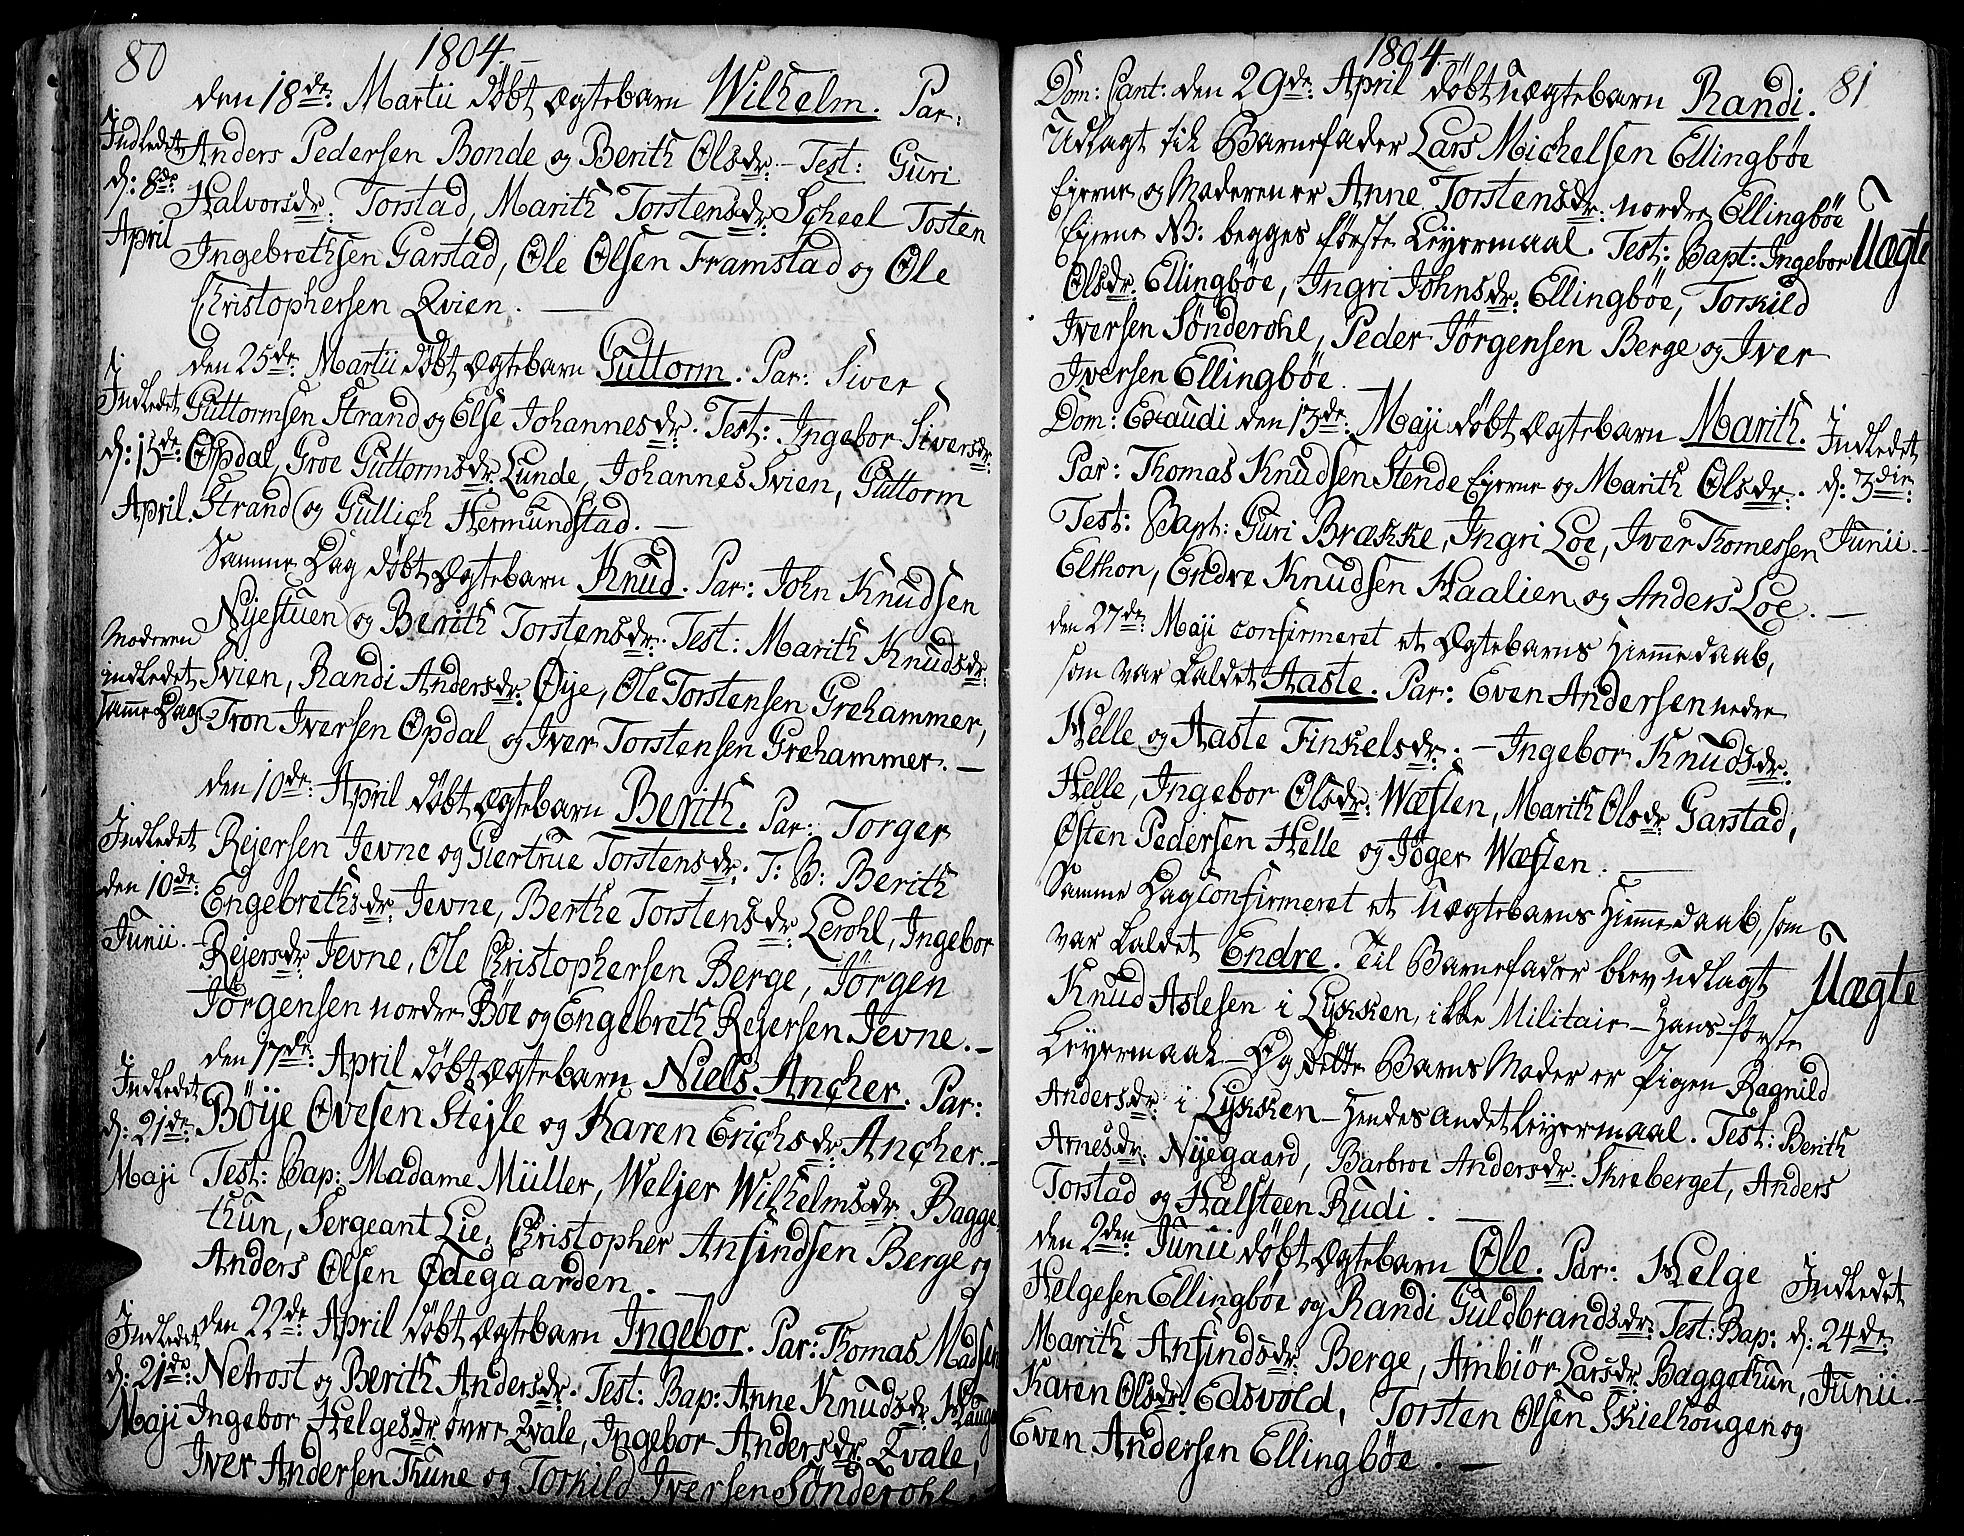 80
1804.
den 18de: Martii døbt Ægtebarn Wilhelm. Par:
Indledet Anders Pedersen Bonde og Berith Olsdr: - Test: Guri
d: 8de: Halvorsdr: Torstad, Marith Torstensdr: Scheel Tosten
April Ingebrethsen Garstad, Ole Olsen Framstad og Ole
Christophersen Qvien. —
den 25de: Martii døbt Ægtebarn Guttorm. Par: Siver
Indledet Guttormsen Strand og Else Johannesdr: Test: Ingebor Siversdr:
d: 15de: Opdal, Groe Guttormsdr: Lunde, Johannes Svien, Guttorm
April. Strand og Gullich Hermundstad. —
Samme Dag døbt Ægtebarn Knud. Par: John Knudsen
Nyestuen og Berith Torstensdr: Test: Marith Knudsdr:
Moderen
indledet Svien, Randi Andersdr: Øye, Ole Torstensen Grehammer,
samme Dag Tron Iversen Opdal og Iver Torstensen Grehammer. —
den 10de: April døbt Ægtebarn Berith. Par: Torger
Indledet Rejersen Jevne og Giertrue Torstensdr: T: B: Berith
den 10de: Engebrethsdr: Jevne, Berthe Torstensdr: Lerohl, Ingebor
Junii. Rejersdr: Jevne, Ole Christophersen Berge, Jørgen
Jørgensen nordre Bøe og Engebreth Rejersen Jevne. —
den 17de: April døbt Ægtebarn Niels Ancher. Par:
Indledet Bøije Ovesen Stejle og Karen Erichsdr: Ancher. —
d: 21de:
Maji Test: Bap: Madame Müller, Weljer Wilhelmsdr: Bagge
thun, Sergeant Lie, Christopher Anfindsen Berge og
Anders Olsen Ødegaarden. —
den 22de: April døbt Ægtebarn Ingebor. Par: Thomas Madsen
Indledet
d: 21de: Nefrost og Berith Andersdr: Test: Bap: Anne Knudsdr: Hauge
Maji Ingebor Helgesdr: øvre Qvale, Ingebor Andersdr: Qvale,
Iver Andersen Thune og Torkild Iversen Sønderohl
1804
81
Dom: Cant: den 29de: April døbt Uægtebarn Randi.
Udlagt til Barnefader Lars Michelsen Ellingbøe
Ejerne og Moderen er Anne Torstensdr: nordre Ellingbøe
Ejerne NB: begges første Leyermaal. Test: Bapt: Ingebor Uægte
Olsdr: Ellingbøe, Ingri Johnsdr: Ellingbøe, Torkild
Iversen Sønderohl, Peder Jørgensen Berge og Iver
Iversen Ellingbøe. —
Dom: Exaudi den 13de: Maji døbt Ægtebarn Marith. Indledet
Par: Thomas Knudsen Stende Ejerne og Marith Olsdr: d: 3die:
Test: Bapt: Guri Brække, Ingri Loe, Iver Thomessen Junii. —
Elthon, Endre Knudsen Haalien og Anders Loe. —
den 27de: Maji confirmeret et Ægtebarns Hjemmedaab,
som var kaldet Aaste. Par: Even Andersen nedre
Helle og Aaste Finkelsdr: - Ingebor Knudsdr:
Helle, Ingebor Olsdr: Wæflen, Marith Olsdr: Garstad,
Østen Pedersen Helle og Jøger Wæflen. —
Samme Dag confirmeret et Uægtebarns Hjemmedaab, som
var kaldet Endre. Til Barnefader blev udlagt Uægte
Knud Aslesen i Lykken, ikke Militair - Hans første
Leyermaal - Og dette Barns Moder er Pigen Ragnild
Andersdr: i Lykken - Hendes andet Leyermaal. Test: Berith
Arnesdr: Nyegaard, Barbroe Andersdr: Skreberget, Anders
Torstad og Halsteen Rudi. —
den 2den: Junii døbt Ægtebarn Ole. Par: Helge Indledet
Helgesen Ellingbøe og Randi Guldbrandsdr: Test: Bap: d: 24de:
Marith Anfindsdr: Berge, Ambiør Larsdr: Baggethun, Junii. —
Karen Olsdr: Edsvold, Torsten Olsen Skielhougen og
Even Andersen Ellingbøe. —